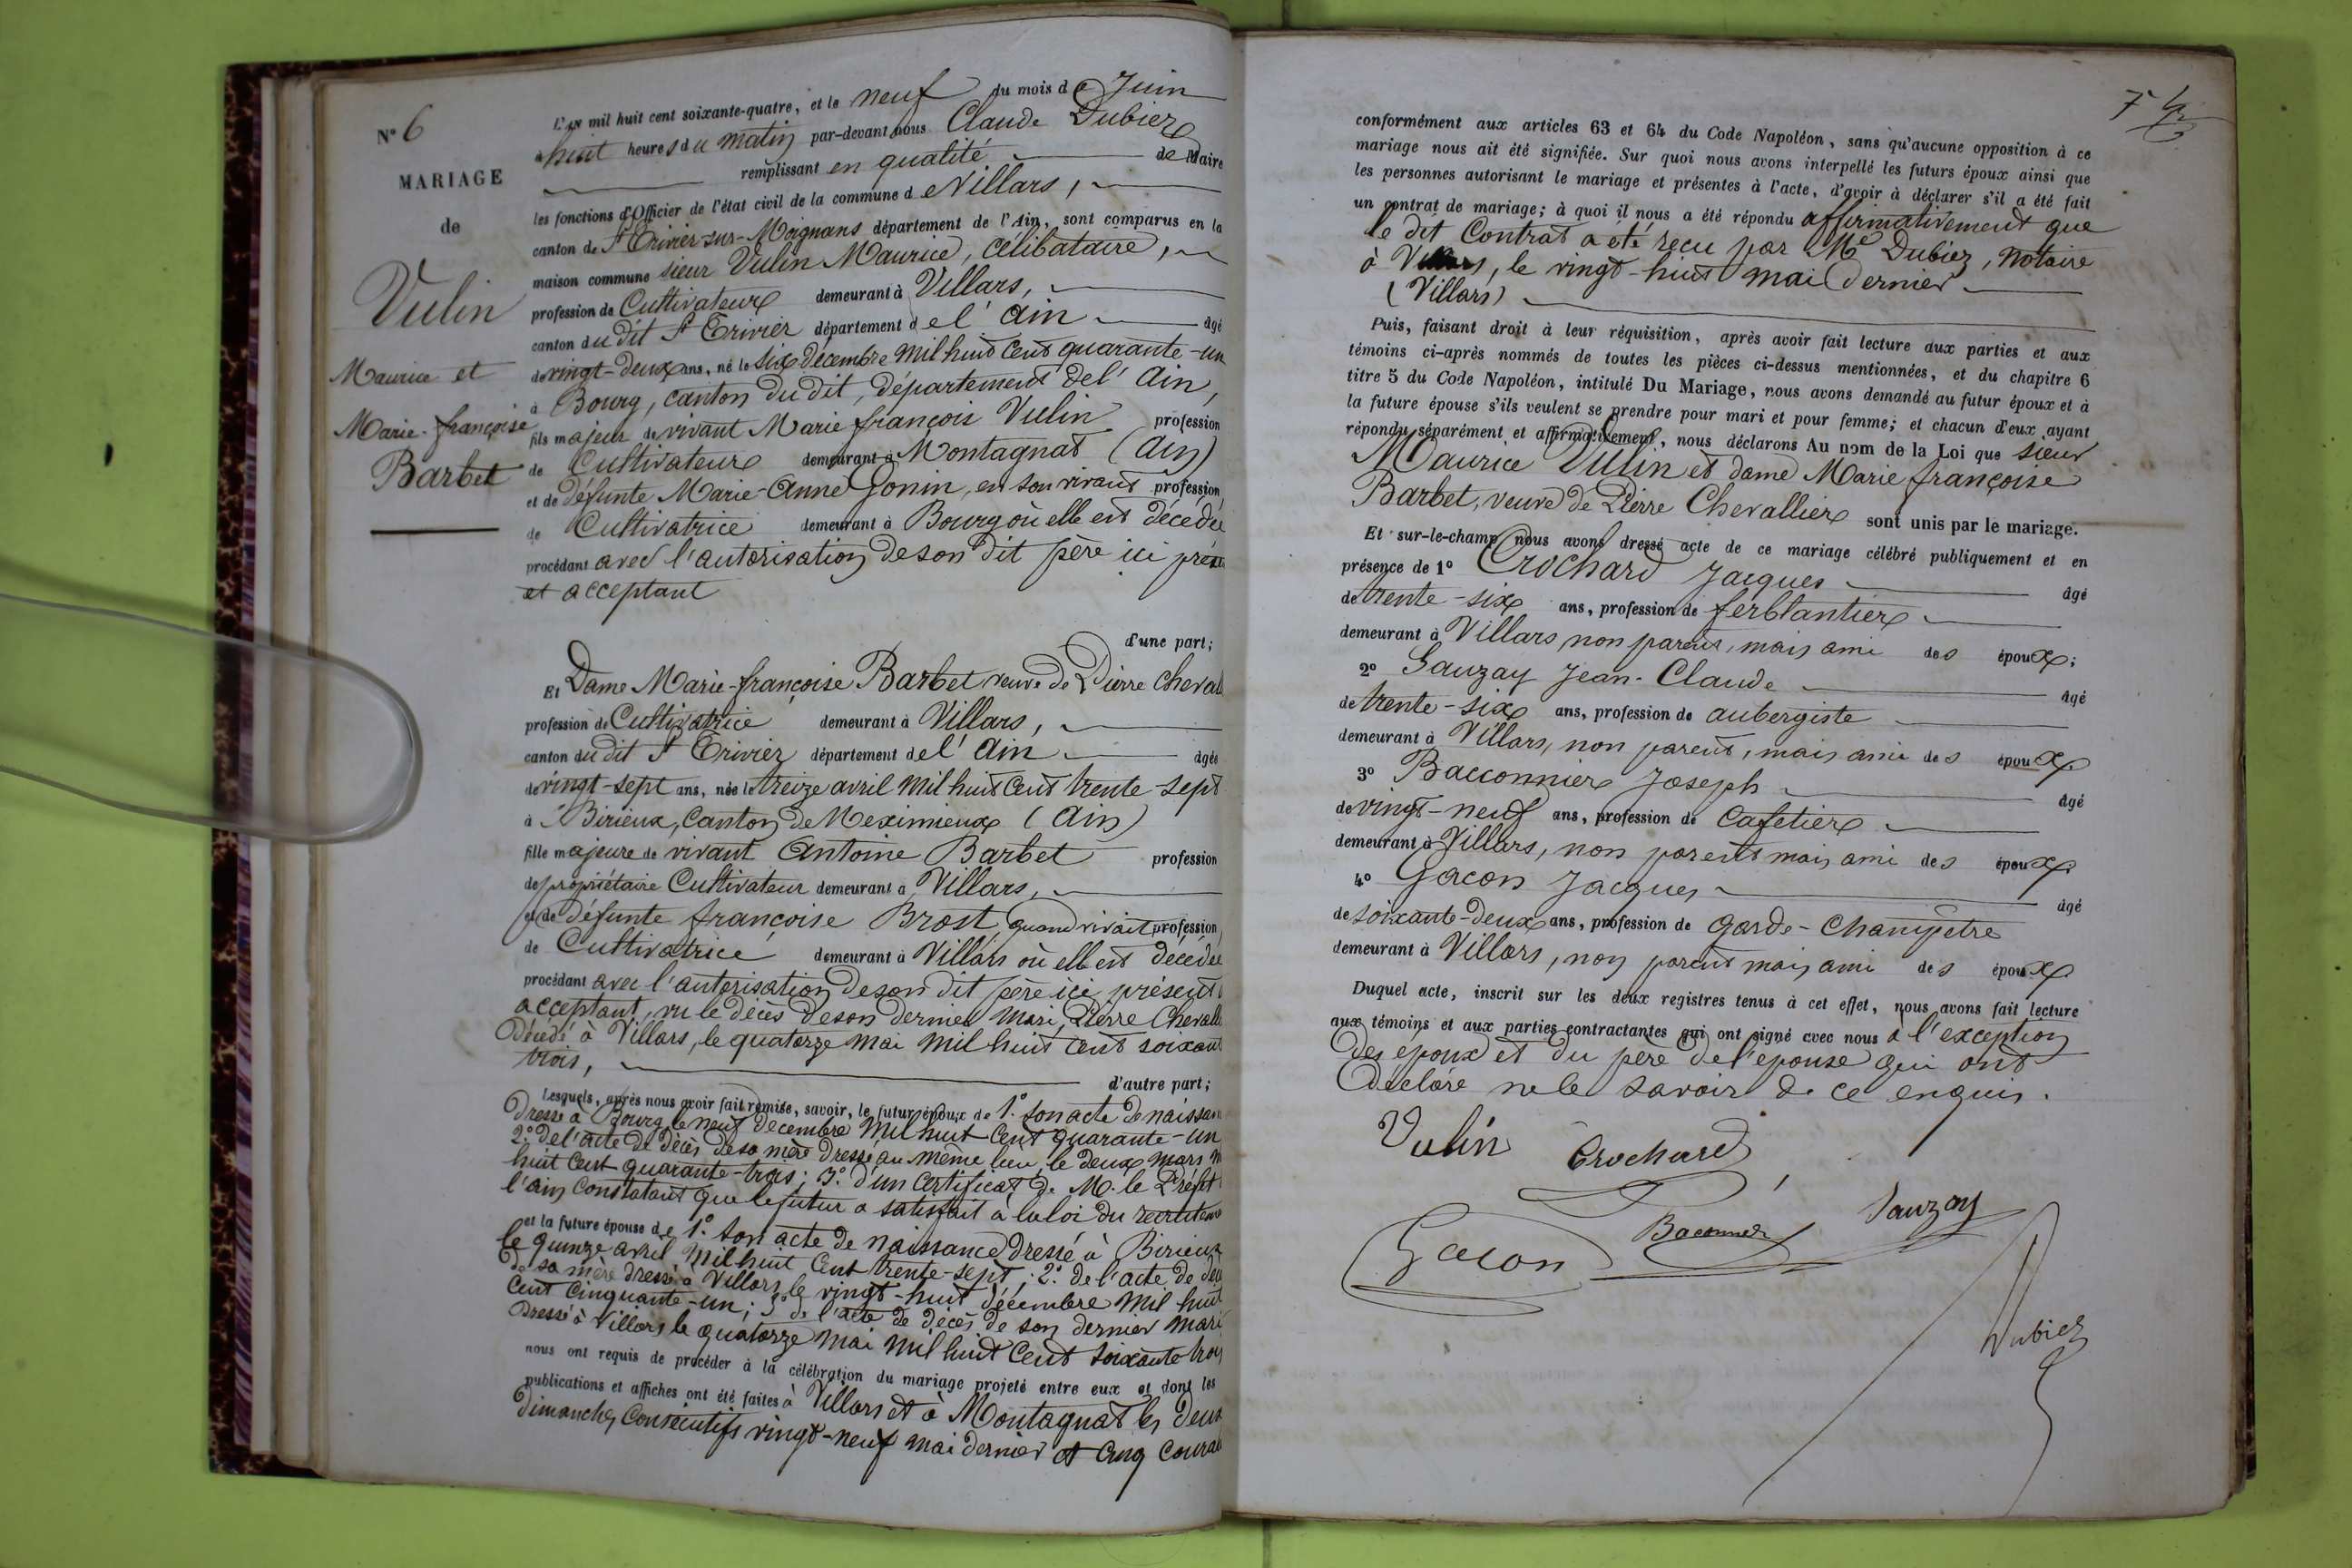 N° 6
MARIAGE
de
Vulin
Maurice et
Marie-françoise
Barbet
L'AN mil huit cent soixante-quatre, et le neuf du mois de Juin
à huit heures du matin par-devant nous Claude Dubiez
remplissant en qualité de Maire
les fonctions d'Officier de l'état civil de la commune de Villars,
canton de St Trivier-sur-Moignans département de l'Ain, sont comparus en la
maison commune sieur Vulin Maurice, célibataire,
profession de Cultivateur demeurant à Villars,
canton du dit St Trivier département de l'Ain âgé
de vingt-deux ans, né le six décembre mil huit cent quarante-un
à Bourg, canton du dit, département de l'Ain,
fils majeur de vivant Marie françois Vulin profession
de Cultivateur demeurant à Montagnat (Ain)
et de défunte Marie-Anne Gonin, en son vivant profession
de Cultivatrice demeurant à Bourg où elle est décédée
procédant avec l'autorisation de son dit père ici présent
et acceptant
d'une part;
Et Dame Marie-françoise Barbet veuve de Pierre Cheval
profession de Cultivatrice demeurant à Villars,
canton du dit St Trivier département de l'Ain âgée
de vingt-sept ans, née le treize avril mil huit cent trente-sept
à Birieux, Canton de Meximieux (Ain)
fille majeure de vivant Antoine Barbet profession
de propriétaire Cultivateur demeurant à Villars,
et de défunte françoise Brost quand vivait profession
de Cultivatrice demeurant à Villars où elle est décédée
procédant avec l'autorisation de son dit père ici présent
acceptant, vu le décès de son dernier mari, Pierre Chevall
décédé à Villars, le quatorze mai mil huit cent soixant
trois,
d'autre part;
Lesquels, après nous avoir fait remise, savoir, le futur époux de 1° son acte de naissan
dressé à Bourg, le neuf décembre mil huit cent quarante-un
2° de l'acte de décès de sa mère dressé au même lieu, le deux mars m
huit cent quarante-trois; 3° d'un certificat de M. le Préfet
l'ain constatant que le futur a satisfait à la loi du recrutem
et la future épouse de 1° son acte de naissance dressé à Birieux
le quinze avril mil huit cent trente-sept; 2° de l'acte de déc
de sa mère dressé à Villars le vingt-huit décembre mil huit
cent cinquante-un; 3° de l'acte de décès de son dernier mari
dressé à Villars le quatorze mai mil huit cent soixante troi
nous ont requis de procéder à la célébration du mariage projeté entre eux et dont les
publications et affiches ont été faites à Villars et à Montagnat les deux
dimanches consécutifs vingt-neuf mai dernier et cinq couran
conformément aux articles 63 et 64 du Code Napoléon, sans qu'aucune opposition à ce
mariage nous ait été signifiée. Sur quoi nous avons interpellé les futurs époux ainsi que
les personnes autorisant le mariage et présentes à l'acte, d'avoir à déclarer s'il a été fait
un contrat de mariage; à quoi il nous a été répondu affirmativement que
le dit Contrat a été reçu par Me Dubiez, notaire
à Villars, le vingt-huit mai dernier
(Villars)
Puis, faisant droit à leur réquisition, après avoir fait lecture aux parties et aux
témoins ci-après nommés de toutes les pièces ci-dessus mentionnées, et du chapitre 6
titre 5 du Code Napoléon, intitulé Du Mariage, nous avons demandé au futur époux et à
la future épouse s'ils veulent se prendre pour mari et pour femme; et chacun d'eux ayant
répondu séparément et affirmativement, nous déclarons Au nom de la Loi que sieur
Maurice Vulin et dame Marie françoise
Barbet, veuve de Pierre Chevallier sont unis par le mariage.
Et sur-le-champ nous avons dressé acte de ce mariage célébré publiquement et en
présence de 1° Crochard Jacques âgé
de trente-six ans, profession de ferblantier
demeurant à Villars, non parent, mais ami des époux;
2° Sauzay Jean-Claude âgé
de trente-six ans, profession de aubergiste
demeurant à Villars, non parent, mais ami des époux
3° Bacconnier Joseph âgé
de vingt-neuf ans, profession de Cafetier
demeurant à Villars, non parent mais ami des époux
4° Gacon Jacques âgé
de soixante-deux ans, profession de garde-Champêtre
demeurant à Villars, non parent mais ami des époux
Duquel acte, inscrit sur les deux registres tenus à cet effet, nous avons fait lecture
aux témoins et aux parties contractantes qui ont signé avec nous à l'exception
des époux et du père de l'épouse qui ont
déclaré ne le savoir de ce enquis.
Vulin Crochard
Gacon Baconnier Sauzay
Dubiez